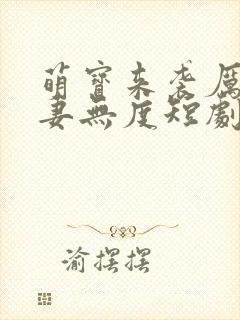 萌寶來袭厲
妻無度短劇
渝摆摆